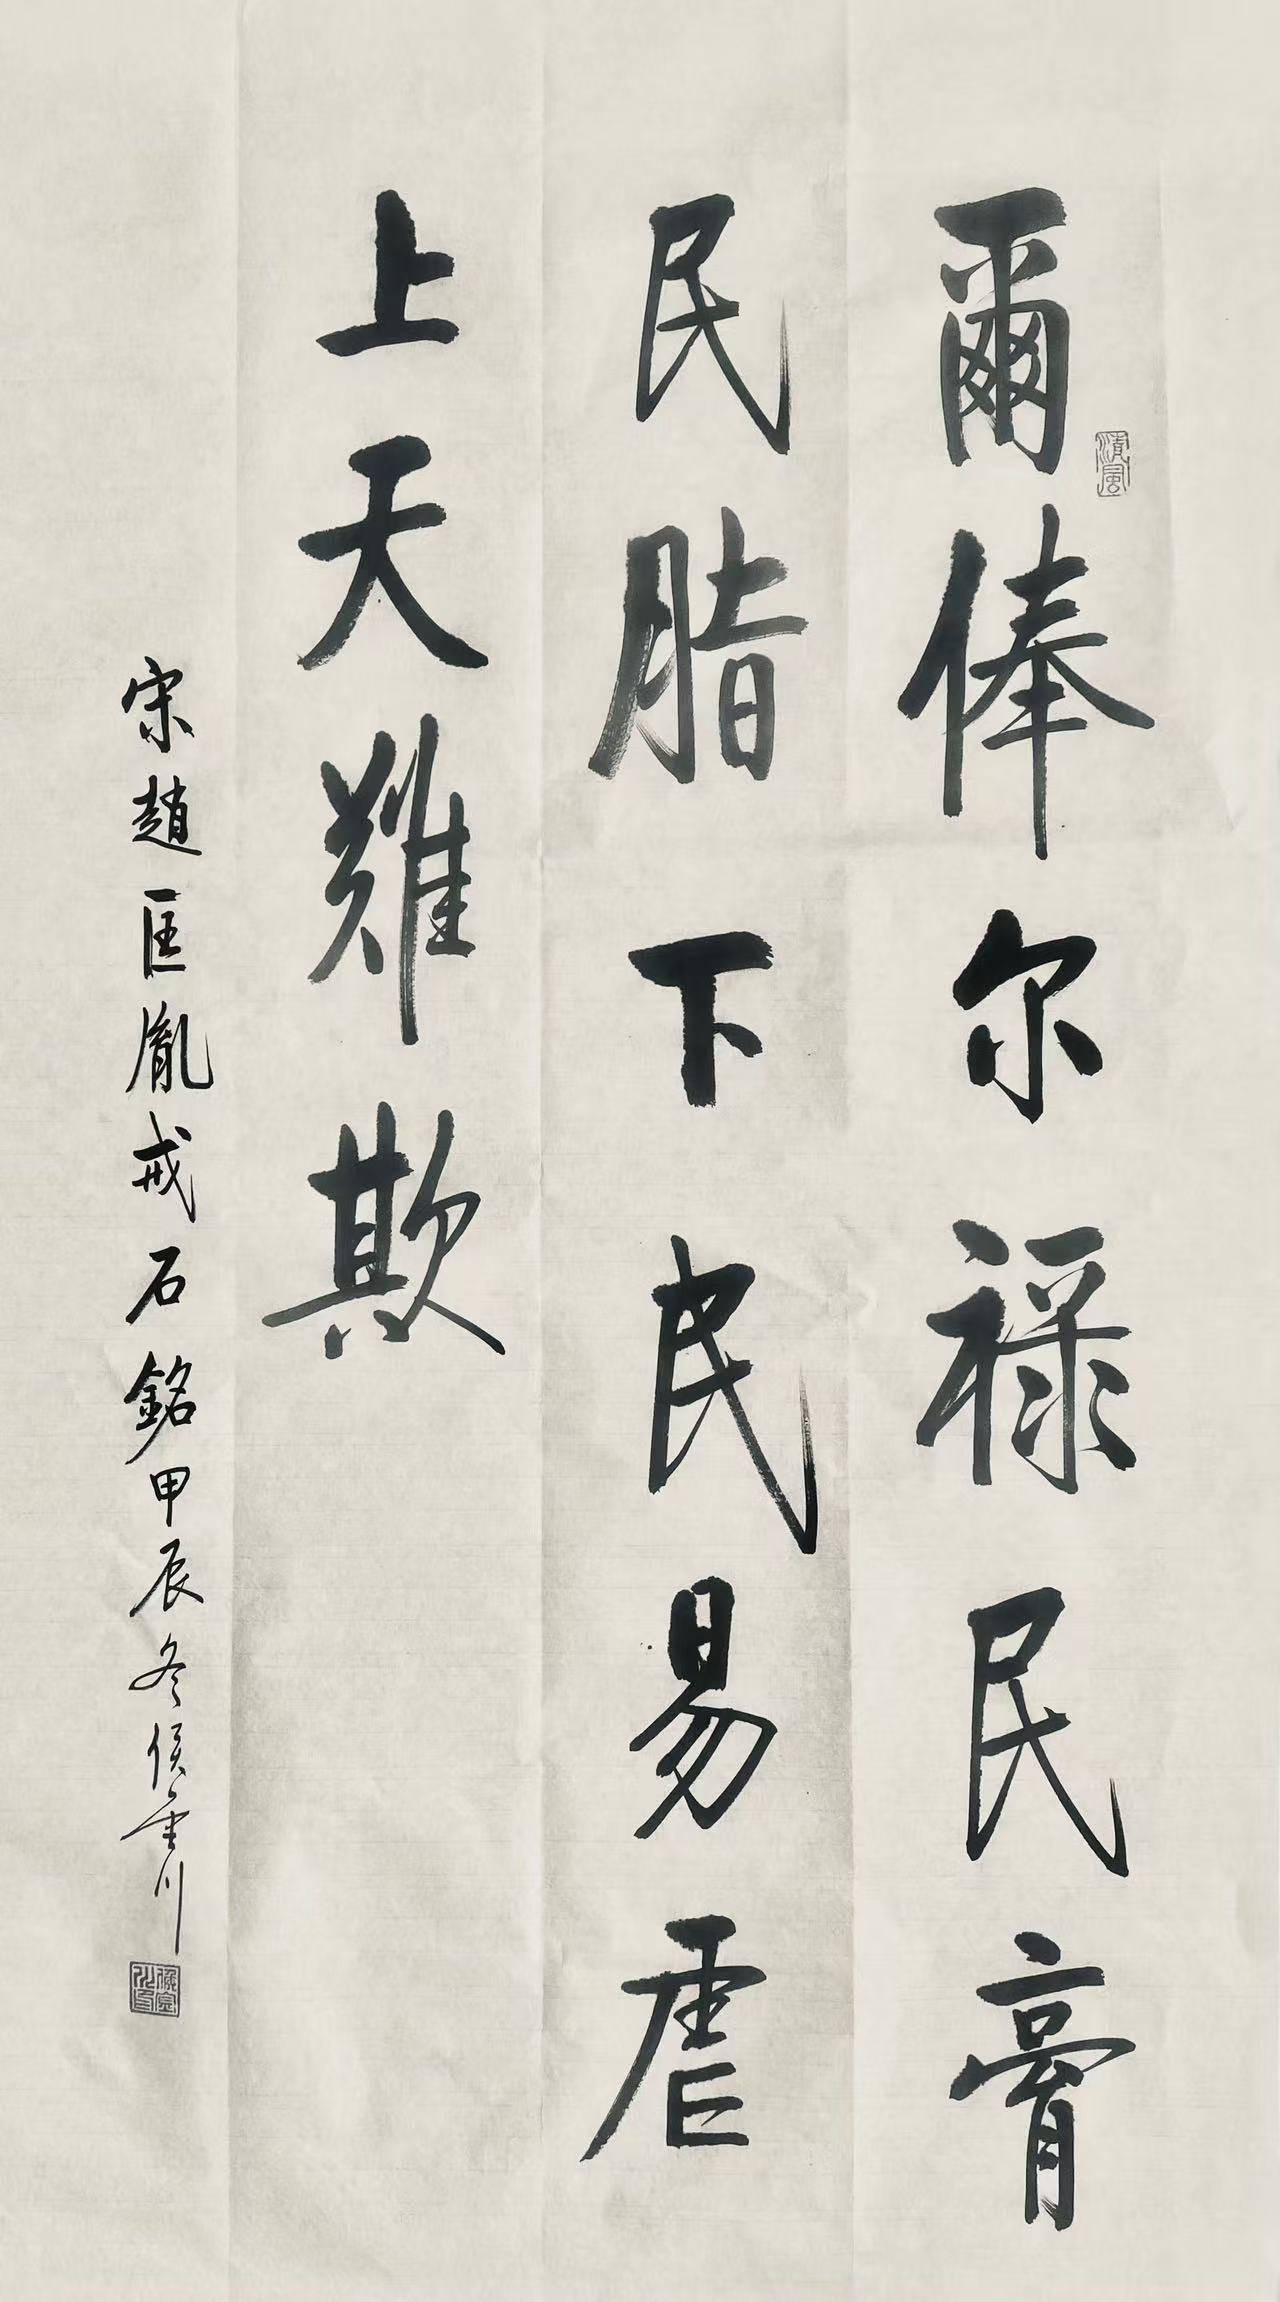 爾俸尔禄民膏
民脂下民易虐
上天難欺
宋趙匡胤戒石銘甲辰冬侯金川
清風